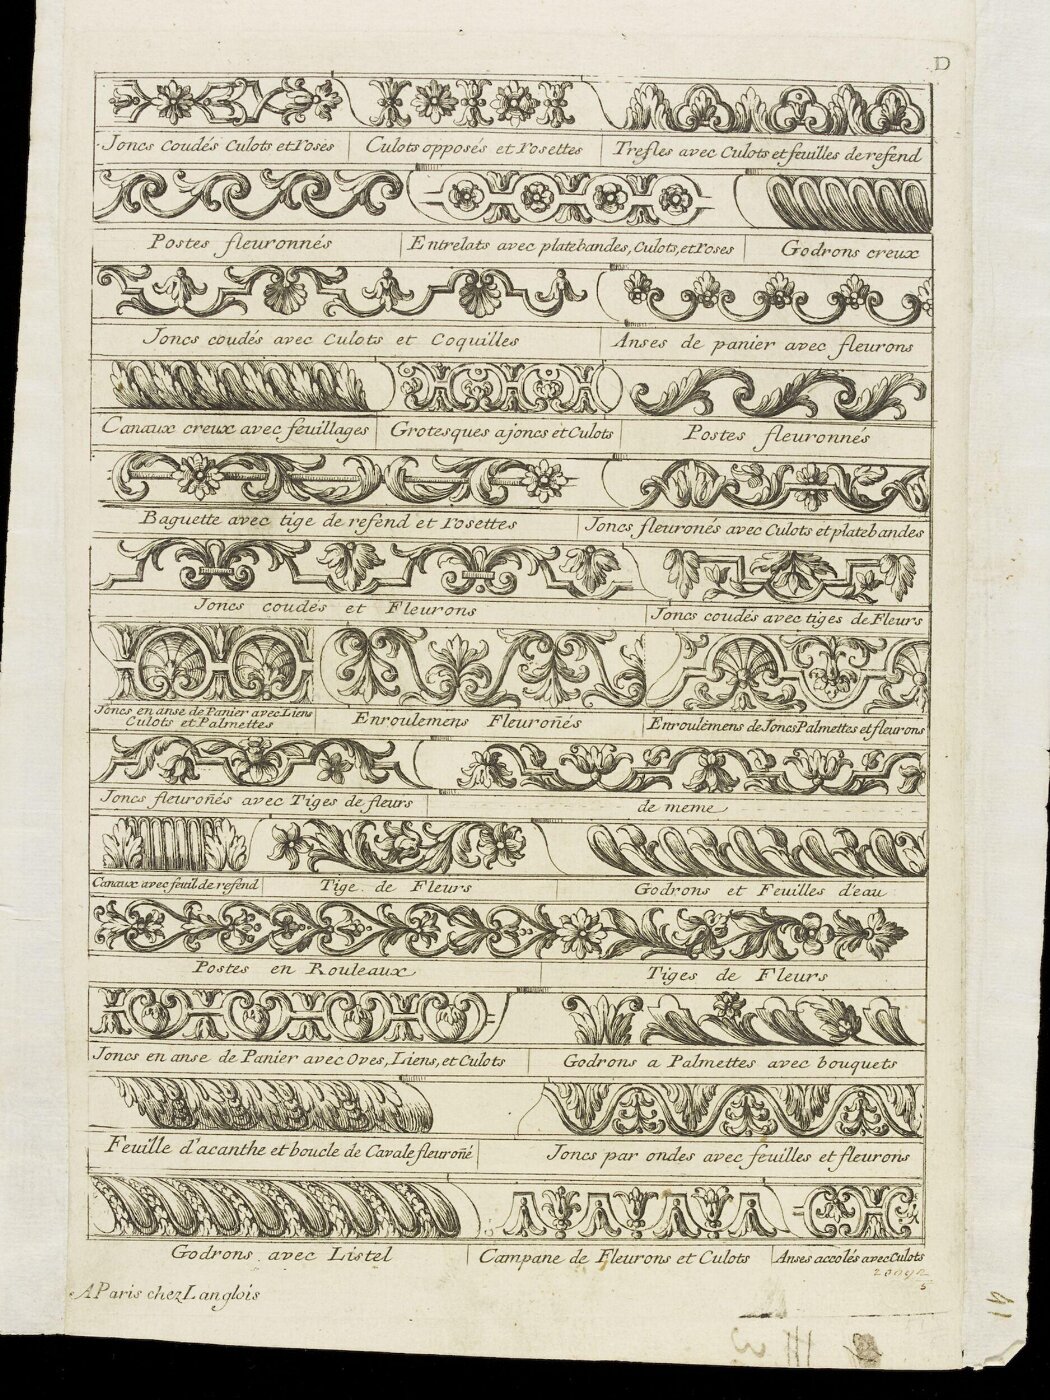 D
Joncs coudés Culots et roses
Culots opposés et rosettes
Trefles avec Culots et feuilles de refend
Postes fleuronnés
Entrelats avec platebandes, Culots, et roses
Godrons creux
Joncs coudés avec Culots et Coquilles
Anses de panier avec fleurons
Canaux creux avec feuillages
Grotesques a joncs et Culots
Postes fleuronnés
Baguette avec tige de refend et rosettes
Joncs fleuronés avec Culots et platebandes
Joncs coudés et Fleurons
Joncs coudés avec tiges de Fleurs
Joncs en anse de Panier avec Liens
Culots et Palmettes
Enroulemens Fleuroñés
Enroulemens de Joncs Palmettes et fleurons
Joncs fleuroñés avec Tiges de fleurs
de meme
Canaux avec feuil de refend
Tige de Fleurs
Godrons et Feuilles d'eau
Postes en Rouleaux
Tiges de Fleurs
Joncs en anse de Panier avec Oves, Liens, et Culots
Godrons a Palmettes avec bouquets
Feuille d'acanthe et boucle de Cavale fleuroñé
Joncs par ondes avec feuilles et fleurons
Godrons avec Listel
Campane de Fleurons et Culots
Anses accolés avec Culots
A Paris chez Langlois